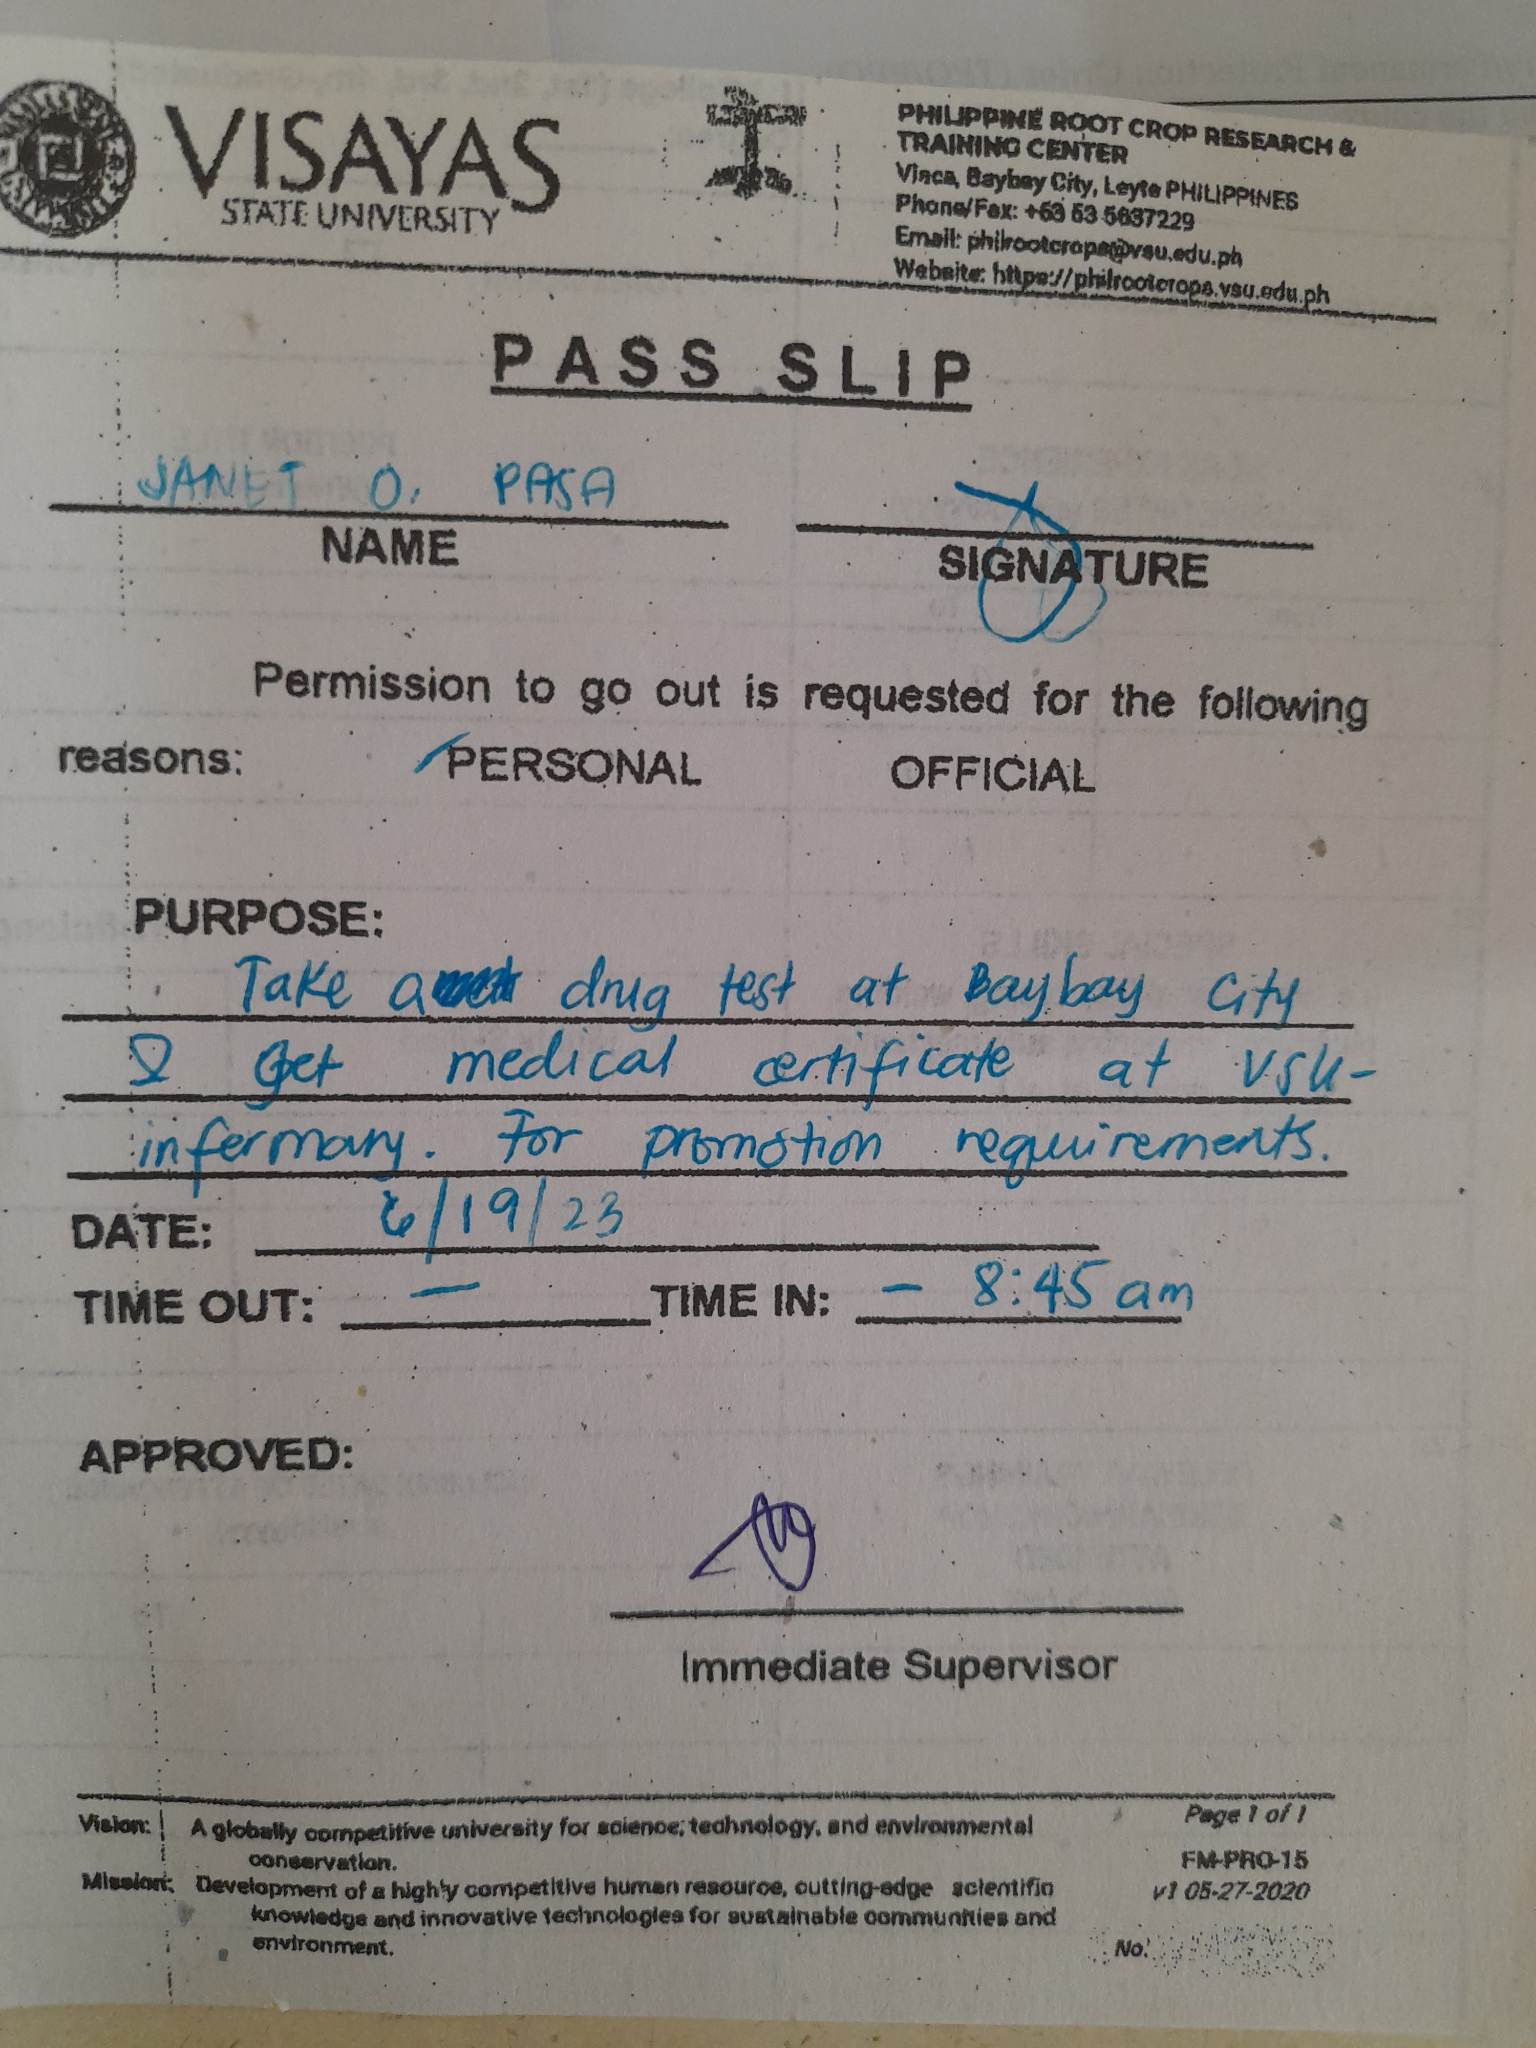 VISAYAS
STATE UNIVERSITY
PHILIPPINE ROOT CROP RESEARCH &
TRAINING CENTER
Visca, Baybay City, Leyte PHILIPPINES
Phone/Fax: +63 53 5637229
Email: philrootcrops@vsu.edu.ph
Website: https://philrootcrops.vsu.edu.ph
PASS SLIP
JANET O. PASA
NAME
SIGNATURE
Permission to go out is requested for the following
reasons: PERSONAL OFFICIAL
PURPOSE:
Take a drug test at Baybay City
& Get medical certificate at VSU-
infermary. For promotion requirements.
DATE: 6/19/23
TIME OUT: — TIME IN: - 8:45 am
APPROVED:
Immediate Supervisor
Vision: A globally competitive university for science, technology, and environmental
conservation.
Mission: Development of a highly competitive human resource, cutting-edge scientific
knowledge and innovative technologies for sustainable communities and
environment.
Page 1 of 1
FM-PRO-15
v1 05-27-2020
No.